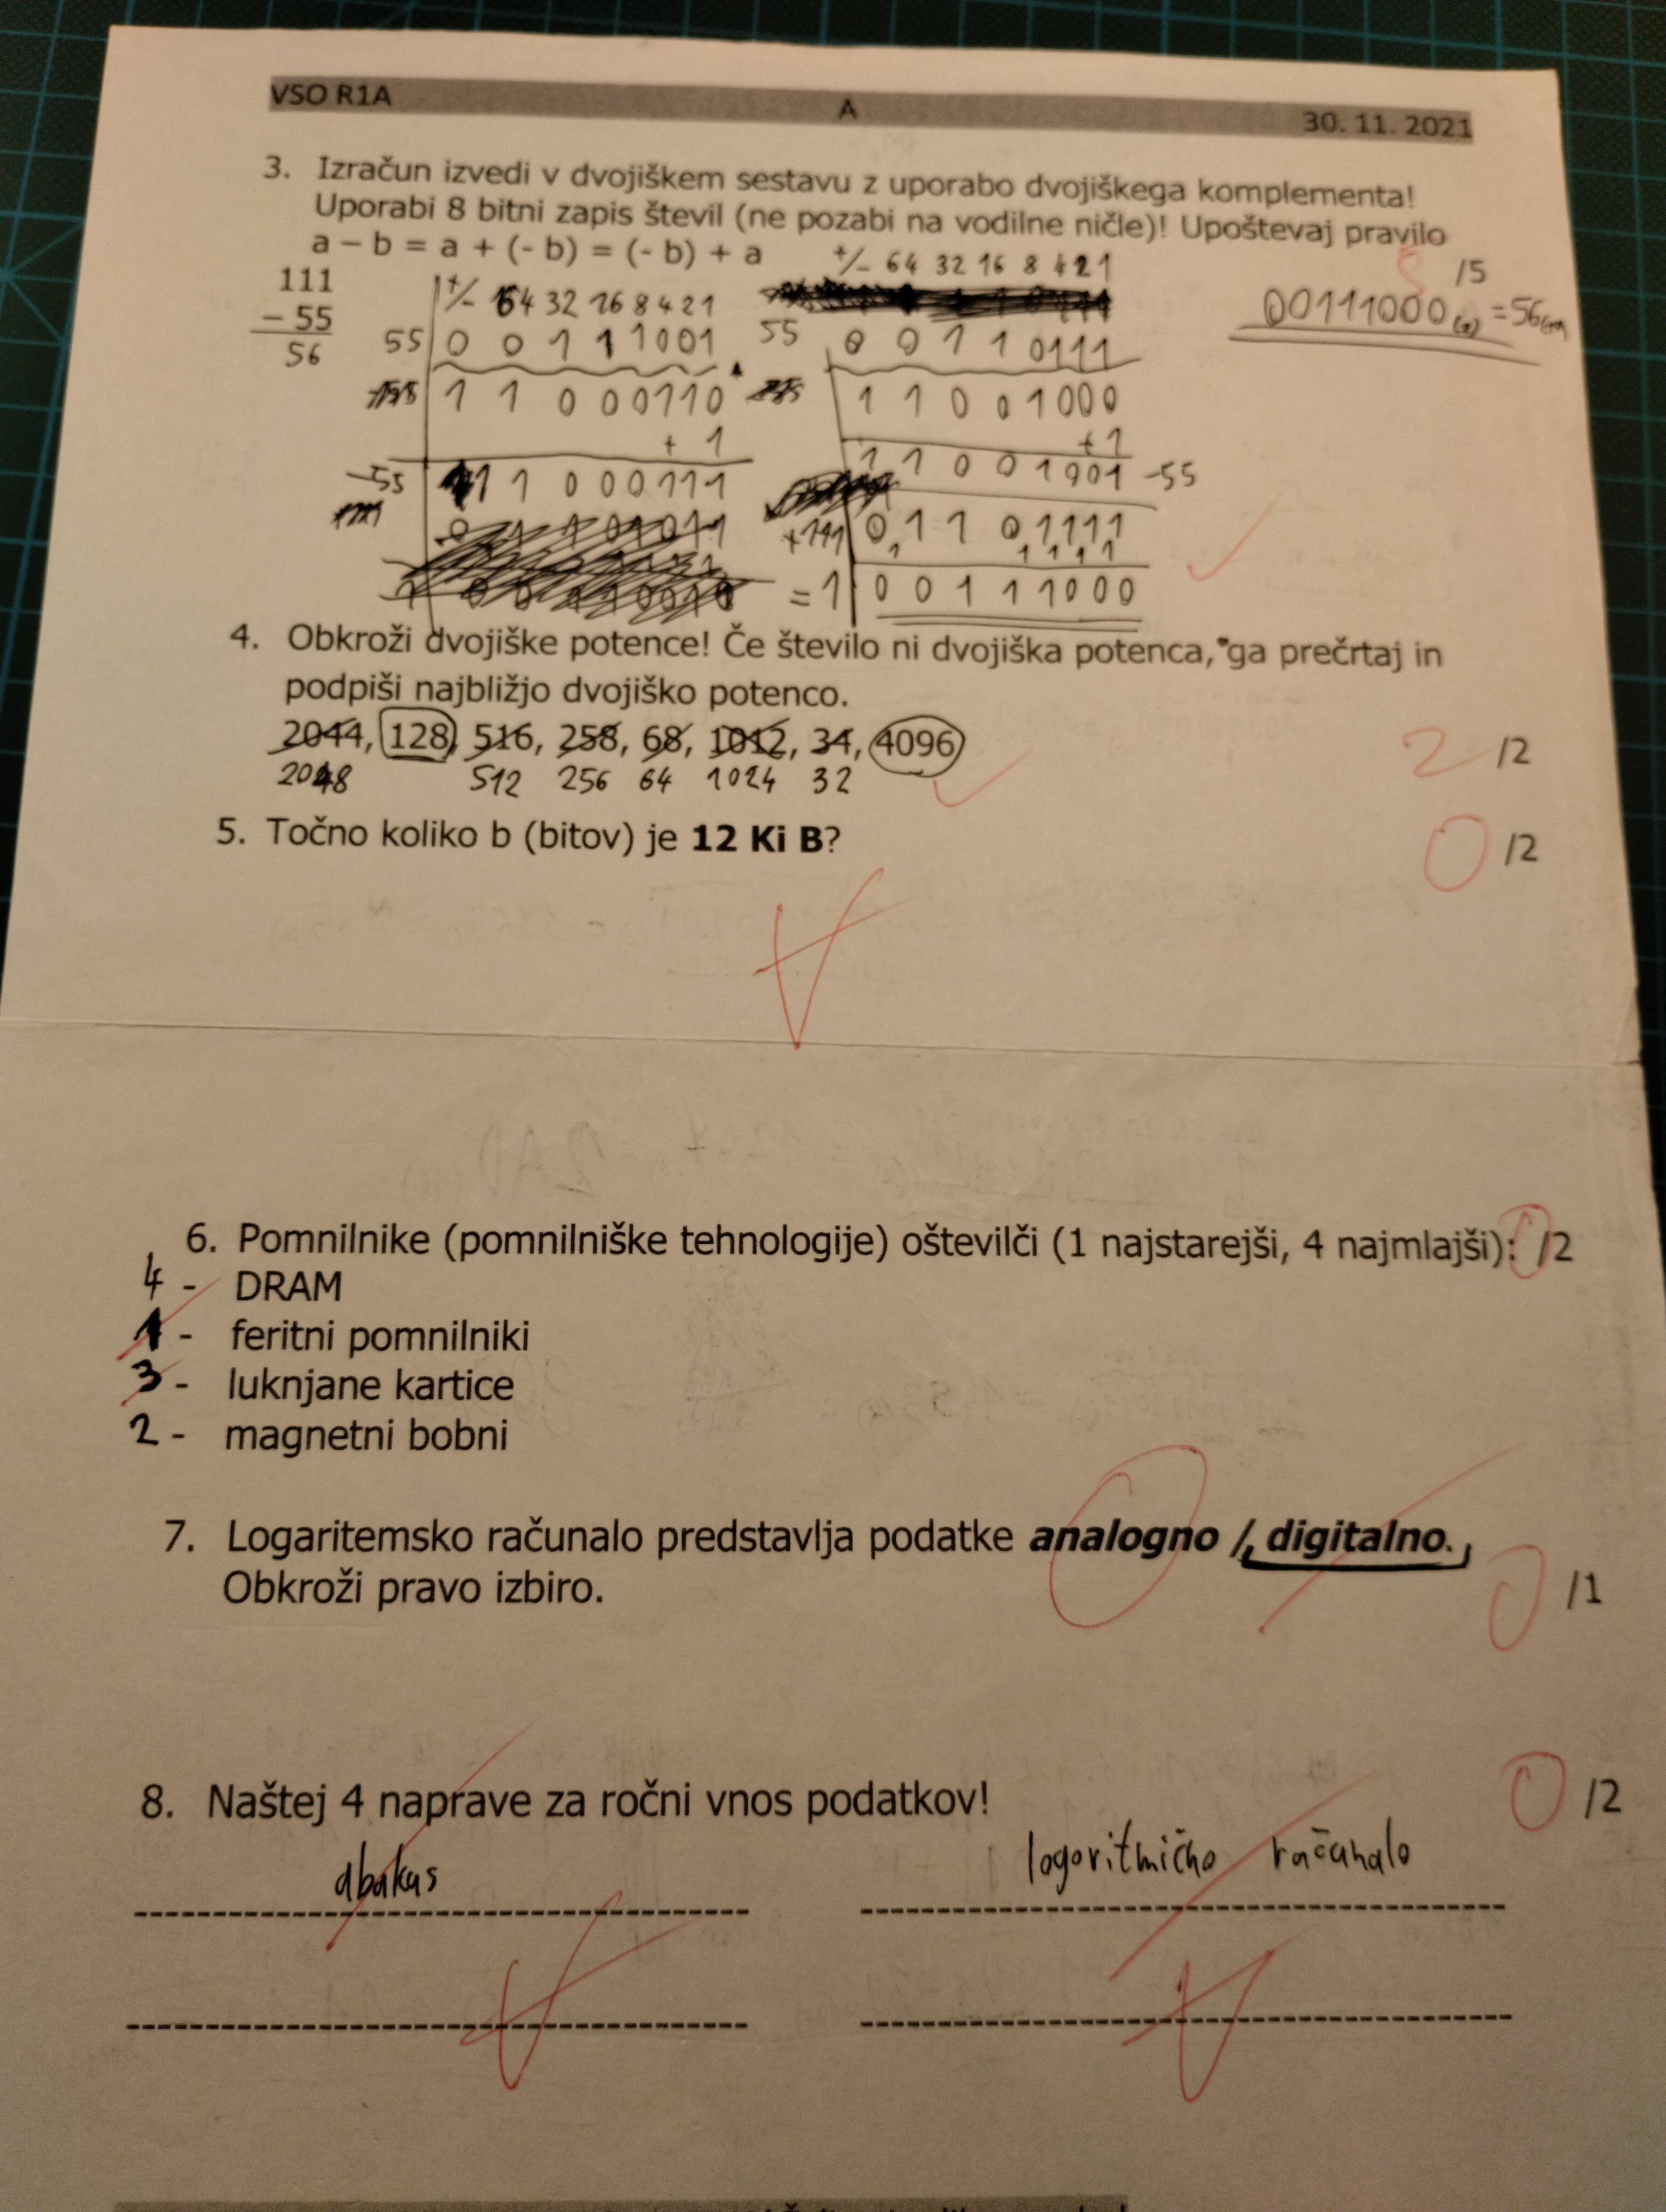 VSO R1A A 30. 11. 2021
3. Izračun izvedi v dvojiškem sestavu z uporabo dvojiškega komplementa!
Uporabi 8 bitni zapis števil (ne pozabi na vodilne ničle)! Upoštevaj pravilo
a – b = a + (- b) = (- b) + a
/5
111
– 55
56
+/- 64 32 16 8 4 2 1
55 0 0 1 1 1 0 0 1
1 1 0 0 0 1 1 0
+ 1
-55 1 1 0 0 0 1 1 1
+/- 64 32 16 8 4 2 1
55 0 0 1 1 0 1 1 1
1 1 0 0 1 0 0 0
+1
1 1 0 0 1 0 0 1 -55
+111 0 1 1 0 1 1 1 1
1 1 1 1 1
= 1 0 0 1 1 1 0 0 0
00111000(2) = 56
4. Obkroži dvojiške potence! Če število ni dvojiška potenca, ga prečrtaj in
podpiši najbližjo dvojiško potenco.
2044, 128, 516, 258, 68, 1012, 34, 4096 2 /2
2048 512 256 64 1024 32
5. Točno koliko b (bitov) je 12 Ki B? 0 /2
6. Pomnilnike (pomnilniške tehnologije) oštevilči (1 najstarejši, 4 najmlajši): 0 /2
4 - DRAM
1 - feritni pomnilniki
3 - luknjane kartice
2 - magnetni bobni
7. Logaritemsko računalo predstavlja podatke analogno / digitalno.
Obkroži pravo izbiro. 0 /1
8. Naštej 4 naprave za ročni vnos podatkov! 0 /2
abakus logoritmično računalo